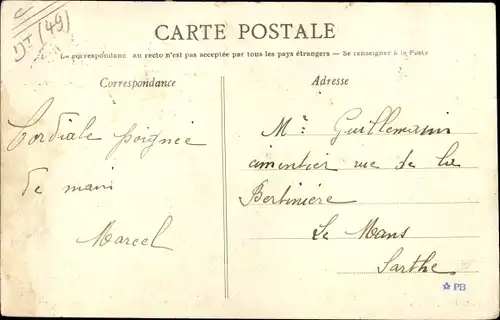 DT (49)
CARTE POSTALE
La correspondance au recto n'est pas acceptée par tous les pays étrangers — Se renseigner à la Poste
Correspondance
Adresse
Cordiale poignée
de main
Marcel
Mr Guillemain
cimentier rue de la
Bertinière
Le Mans
Sarthe
PB